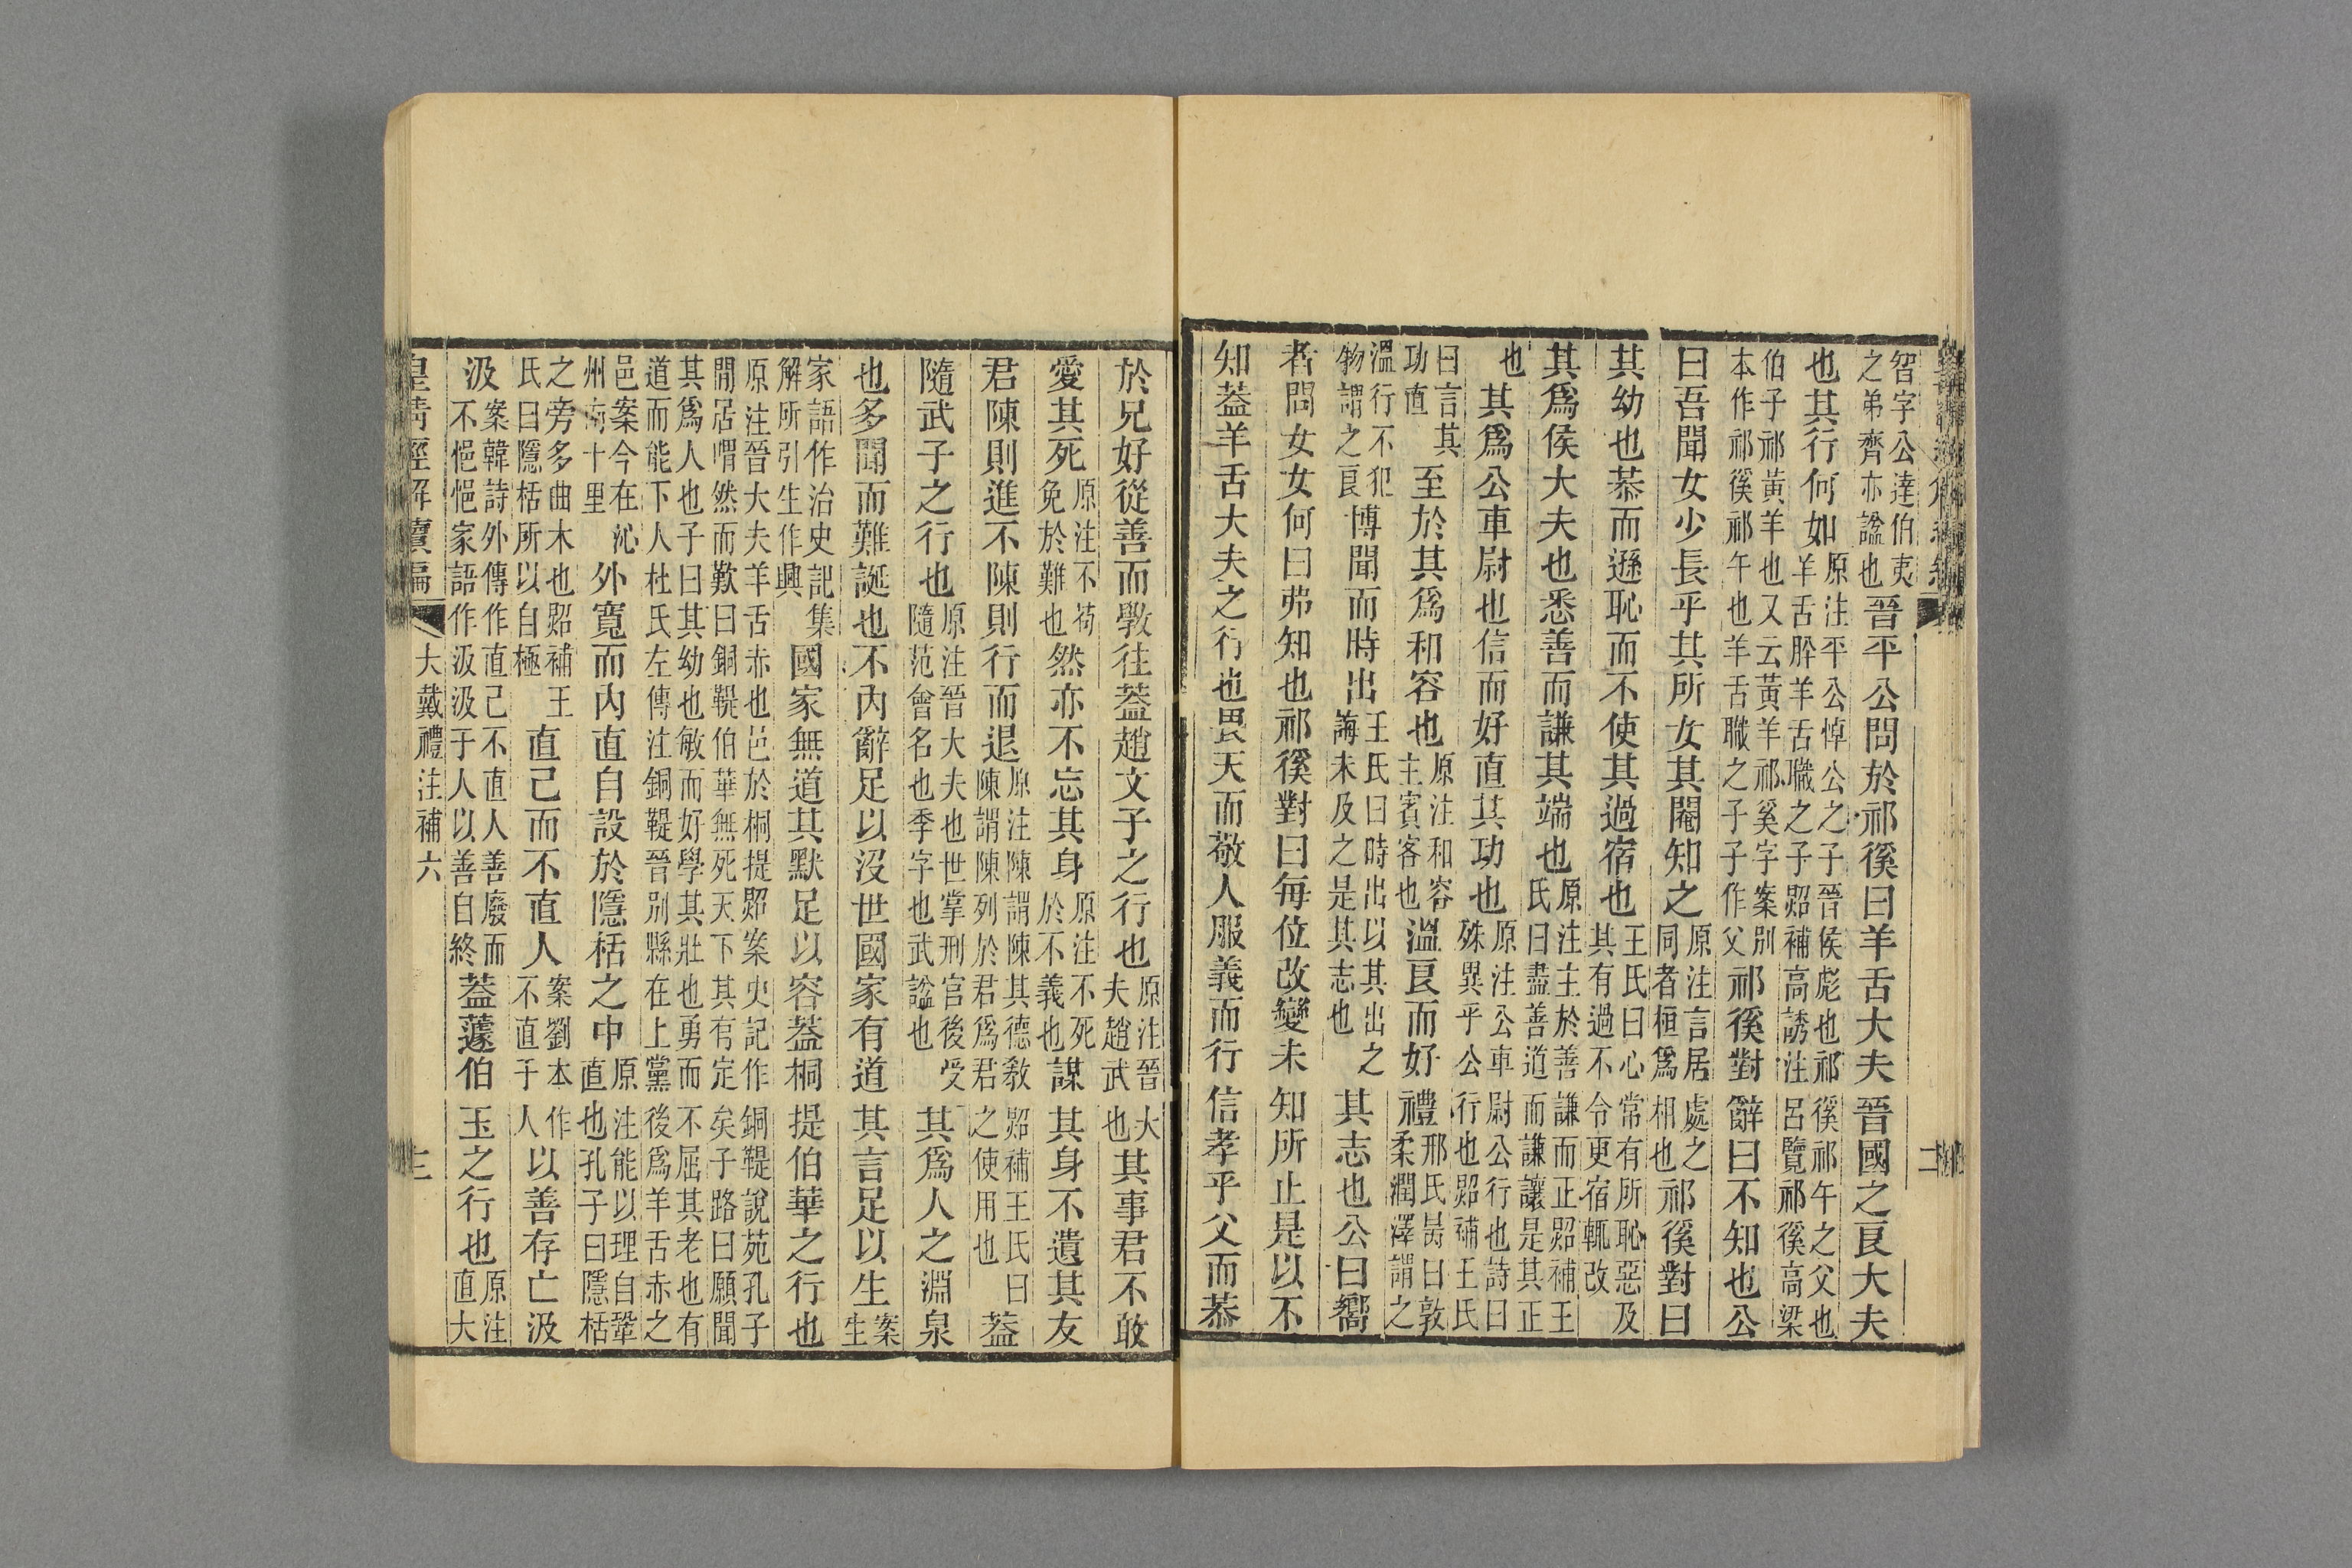 智字公達伯夷之弟齊亦諡也晉平公問於祁徯曰羊舌大夫晉國之良大夫
也其行何如原注平公悼公之子晉侯彪也祁徯祁午之父也羊舌肸羊舌職之子照補高誘注呂覽祁徯高梁
伯子祁黃羊也又云黃羊祁奚字案別本作祁徯祁午也羊舌職之子子作父祁徯對辭曰不知也公
曰吾聞女少長乎其所女其閹知之原注言居處之同者桓爲相也祁徯對曰
其幼也恭而遜恥而不使其過宿也王氏曰心常有所恥惡及其有過不令更宿輒改
其爲侯大夫也悉善而謙其端也原注主於善謙而正照補王氏曰盡善道而謙讓是其正
也其爲公車尉也信而好直其功也原注公車尉公行也詩曰殊異乎公行也照補王氏
曰言其功直至於其爲和容也原注和容主賓客也溫良而好禮邢氏昺曰敦柔潤澤謂之
溫行不犯物謂之良博聞而時出王氏曰時出以其出之誨未及之是其志也其志也公曰嚮
者問女女何曰弗知也祁徯對曰每位改變未知所止是以不
知蓋羊舌大夫之行也畏天而敬人服義而行信孝乎父而恭
二
於兄好從善而斆往蓋趙文子之行也原注晉大夫趙武也其事君不敢
愛其死原注不苟免於難也然亦不忘其身原注不死於不義也謀其身不遺其友
君陳則進不陳則行而退原注陳謂陳其德教陳謂陳列於君爲君照補王氏曰之使用也蓋
隨武子之行也原注晉大夫也世掌刑官後受隨范會名也季字也武諡也其爲人之淵泉
也多聞而難誕也不內辭足以沒世國家有道其言足以生案生
家語作治史記集解所引生作興國家無道其默足以容蓋桐提伯華之行也
原注晉大夫羊舌赤也邑於桐提照案史記作銅鞮說苑孔子閒居喟然而歎曰銅鞮伯華無死天下其有定矣子路曰願聞
其爲人也子曰其幼也敏而好學其壯也勇而不屈其老也有道而能下人杜氏左傳注銅鞮晉别縣在上黨後爲羊舌赤之
邑案今在沁州南十里外寬而內直自設於隱栝之中原注能以理自鞏直也孔子曰隱栝
之旁多曲木也照補王氏曰隱栝所以自極直己而不直人案劉本作不直于人以善存亡汲
汲案韓詩外傳作直己不直人善廢而不悒悒家語作汲汲于人以善自終蓋蘧伯玉之行也原注直大
皇清經解續編 大戴禮注補六 三